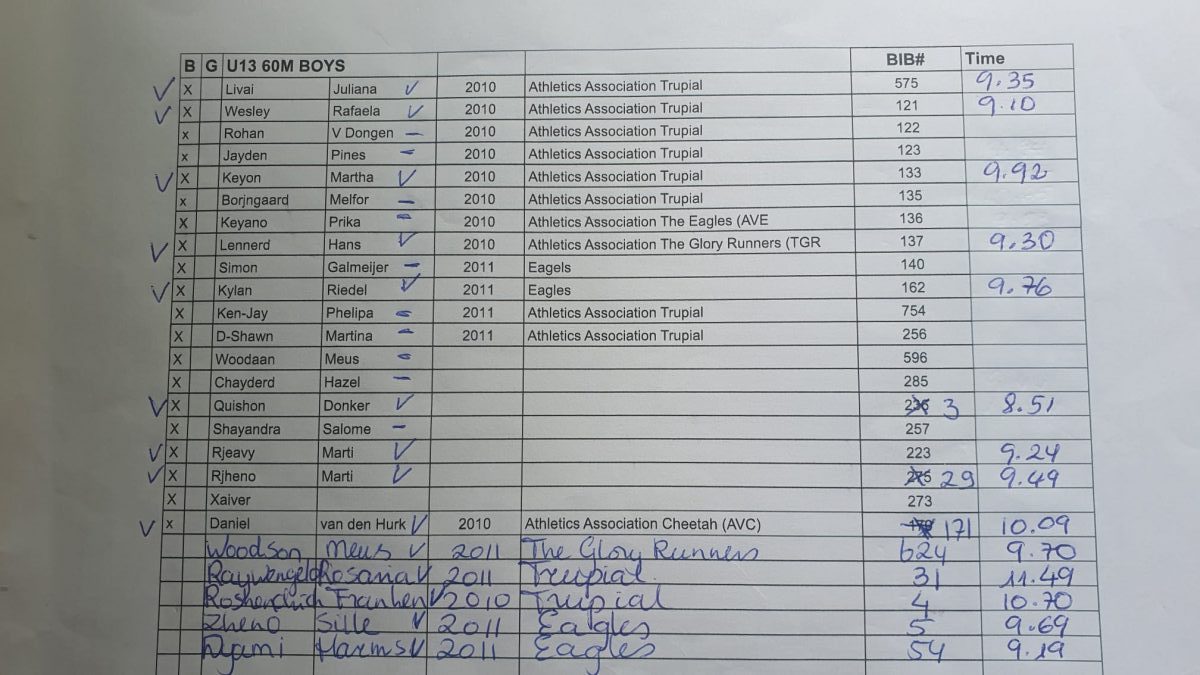 B G U13 60M BOYS BIB# Time
✓ X Livai Juliana ✓ 2010 Athletics Association Trupial 575 9.35
✓ X Wesley Rafaela ✓ 2010 Athletics Association Trupial 121 9.10
x Rohan V Dongen – 2010 Athletics Association Trupial 122
x Jayden Pines – 2010 Athletics Association Trupial 123
✓ X Keyon Martha ✓ 2010 Athletics Association Trupial 133 9.92
x Borjngaard Melfor – 2010 Athletics Association Trupial 135
X Keyano Prika – 2010 Athletics Association The Eagles (AVE 136
✓ X Lennerd Hans ✓ 2010 Athletics Association The Glory Runners (TGR 137 9.30
X Simon Galmeijer – 2011 Eagels 140
✓ X Kylan Riedel ✓ 2011 Eagles 162 9.76
X Ken-Jay Phelipa – 2011 Athletics Association Trupial 754
X D-Shawn Martina – 2011 Athletics Association Trupial 256
X Woodaan Meus – 596
X Chayderd Hazel – 285
✓ X Quishon Donker ✓ 3 8.51
X Shayandra Salome – 257
✓ X Rjeavy Marti ✓ 223 9.24
✓ X Rjheno Marti ✓ 275 29 9.49
X Xaiver 273
✓ x Daniel van den Hurk ✓ 2010 Athletics Association Cheetah (AVC) 171 10.09
Woodson Meus ✓ 2011 The Glory Runners 624 9.70
Rosaria ✓ 2011 Trupial 31 11.49
Franken ✓ 2010 Trupial 4 10.70
Zheno Sille ✓ 2011 Eagles 5 9.69
Dyami Harms ✓ 2011 Eagles 54 9.19